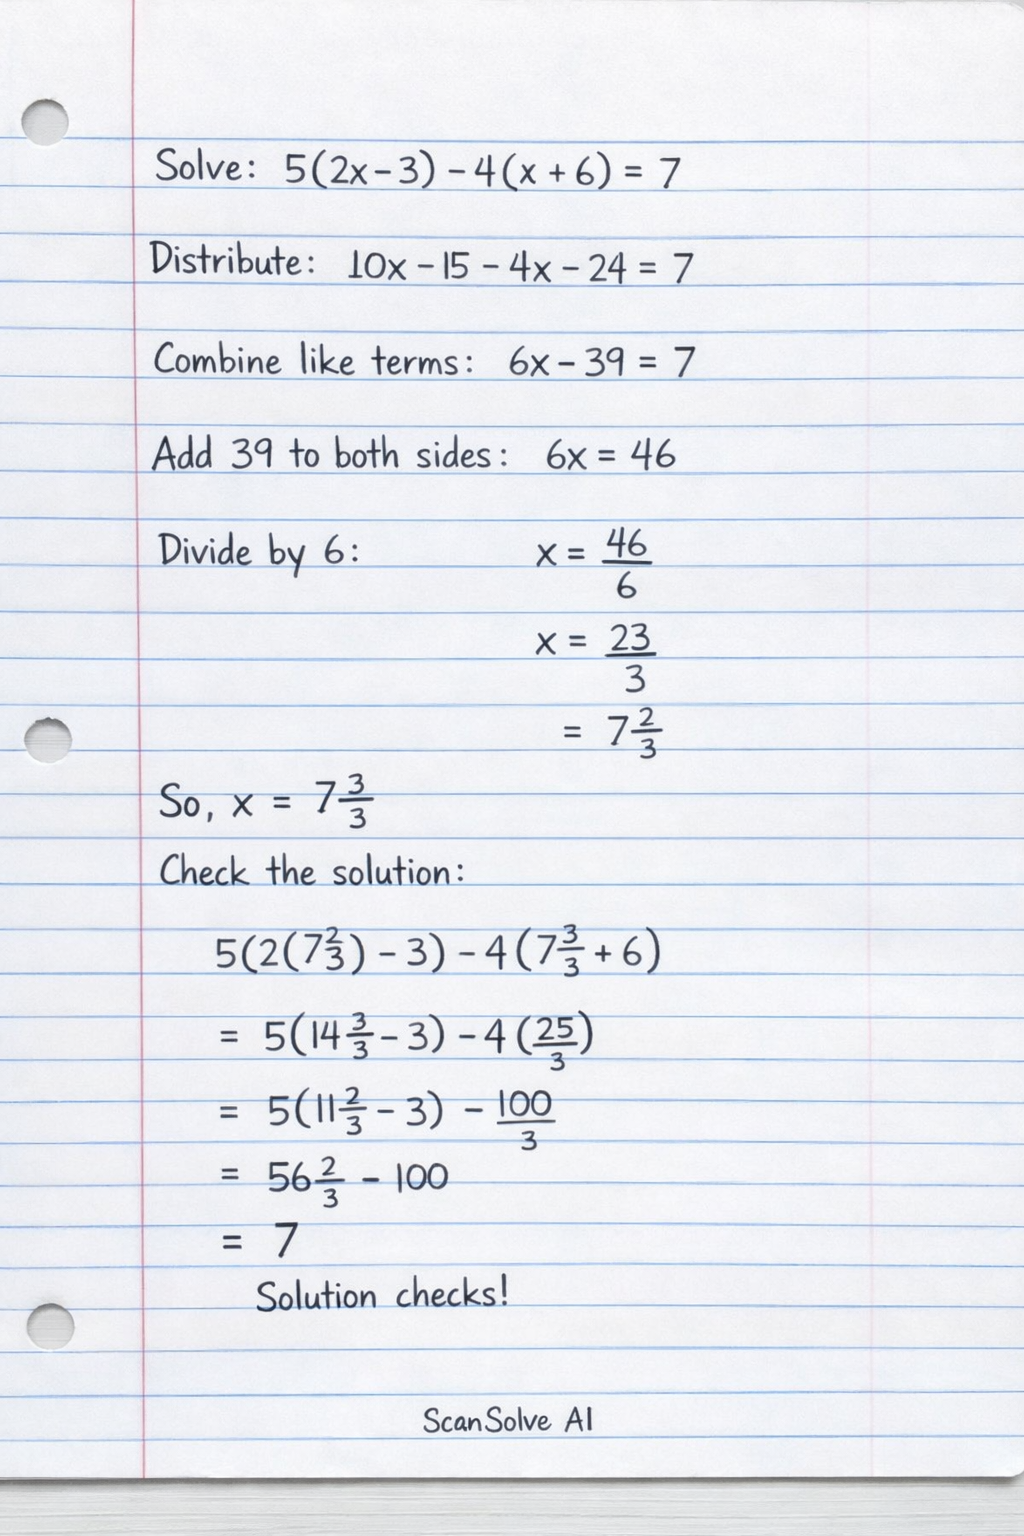 Solve: 5(2x-3) - 4(x + 6) = 7
Distribute: 10x - 15 - 4x - 24 = 7
Combine like terms: 6x - 39 = 7
Add 39 to both sides: 6x = 46
Divide by 6: x = 46/6
x = 23/3
= 7 2/3
So, x = 7 3/3
Check the solution:
5(2(7 2/3) - 3) - 4(7 3/3 + 6)
= 5(14 3/3 - 3) - 4(25/3)
= 5(11 2/3 - 3) - 100/3
= 56 2/3 - 100
= 7
Solution checks!
ScanSolve AI